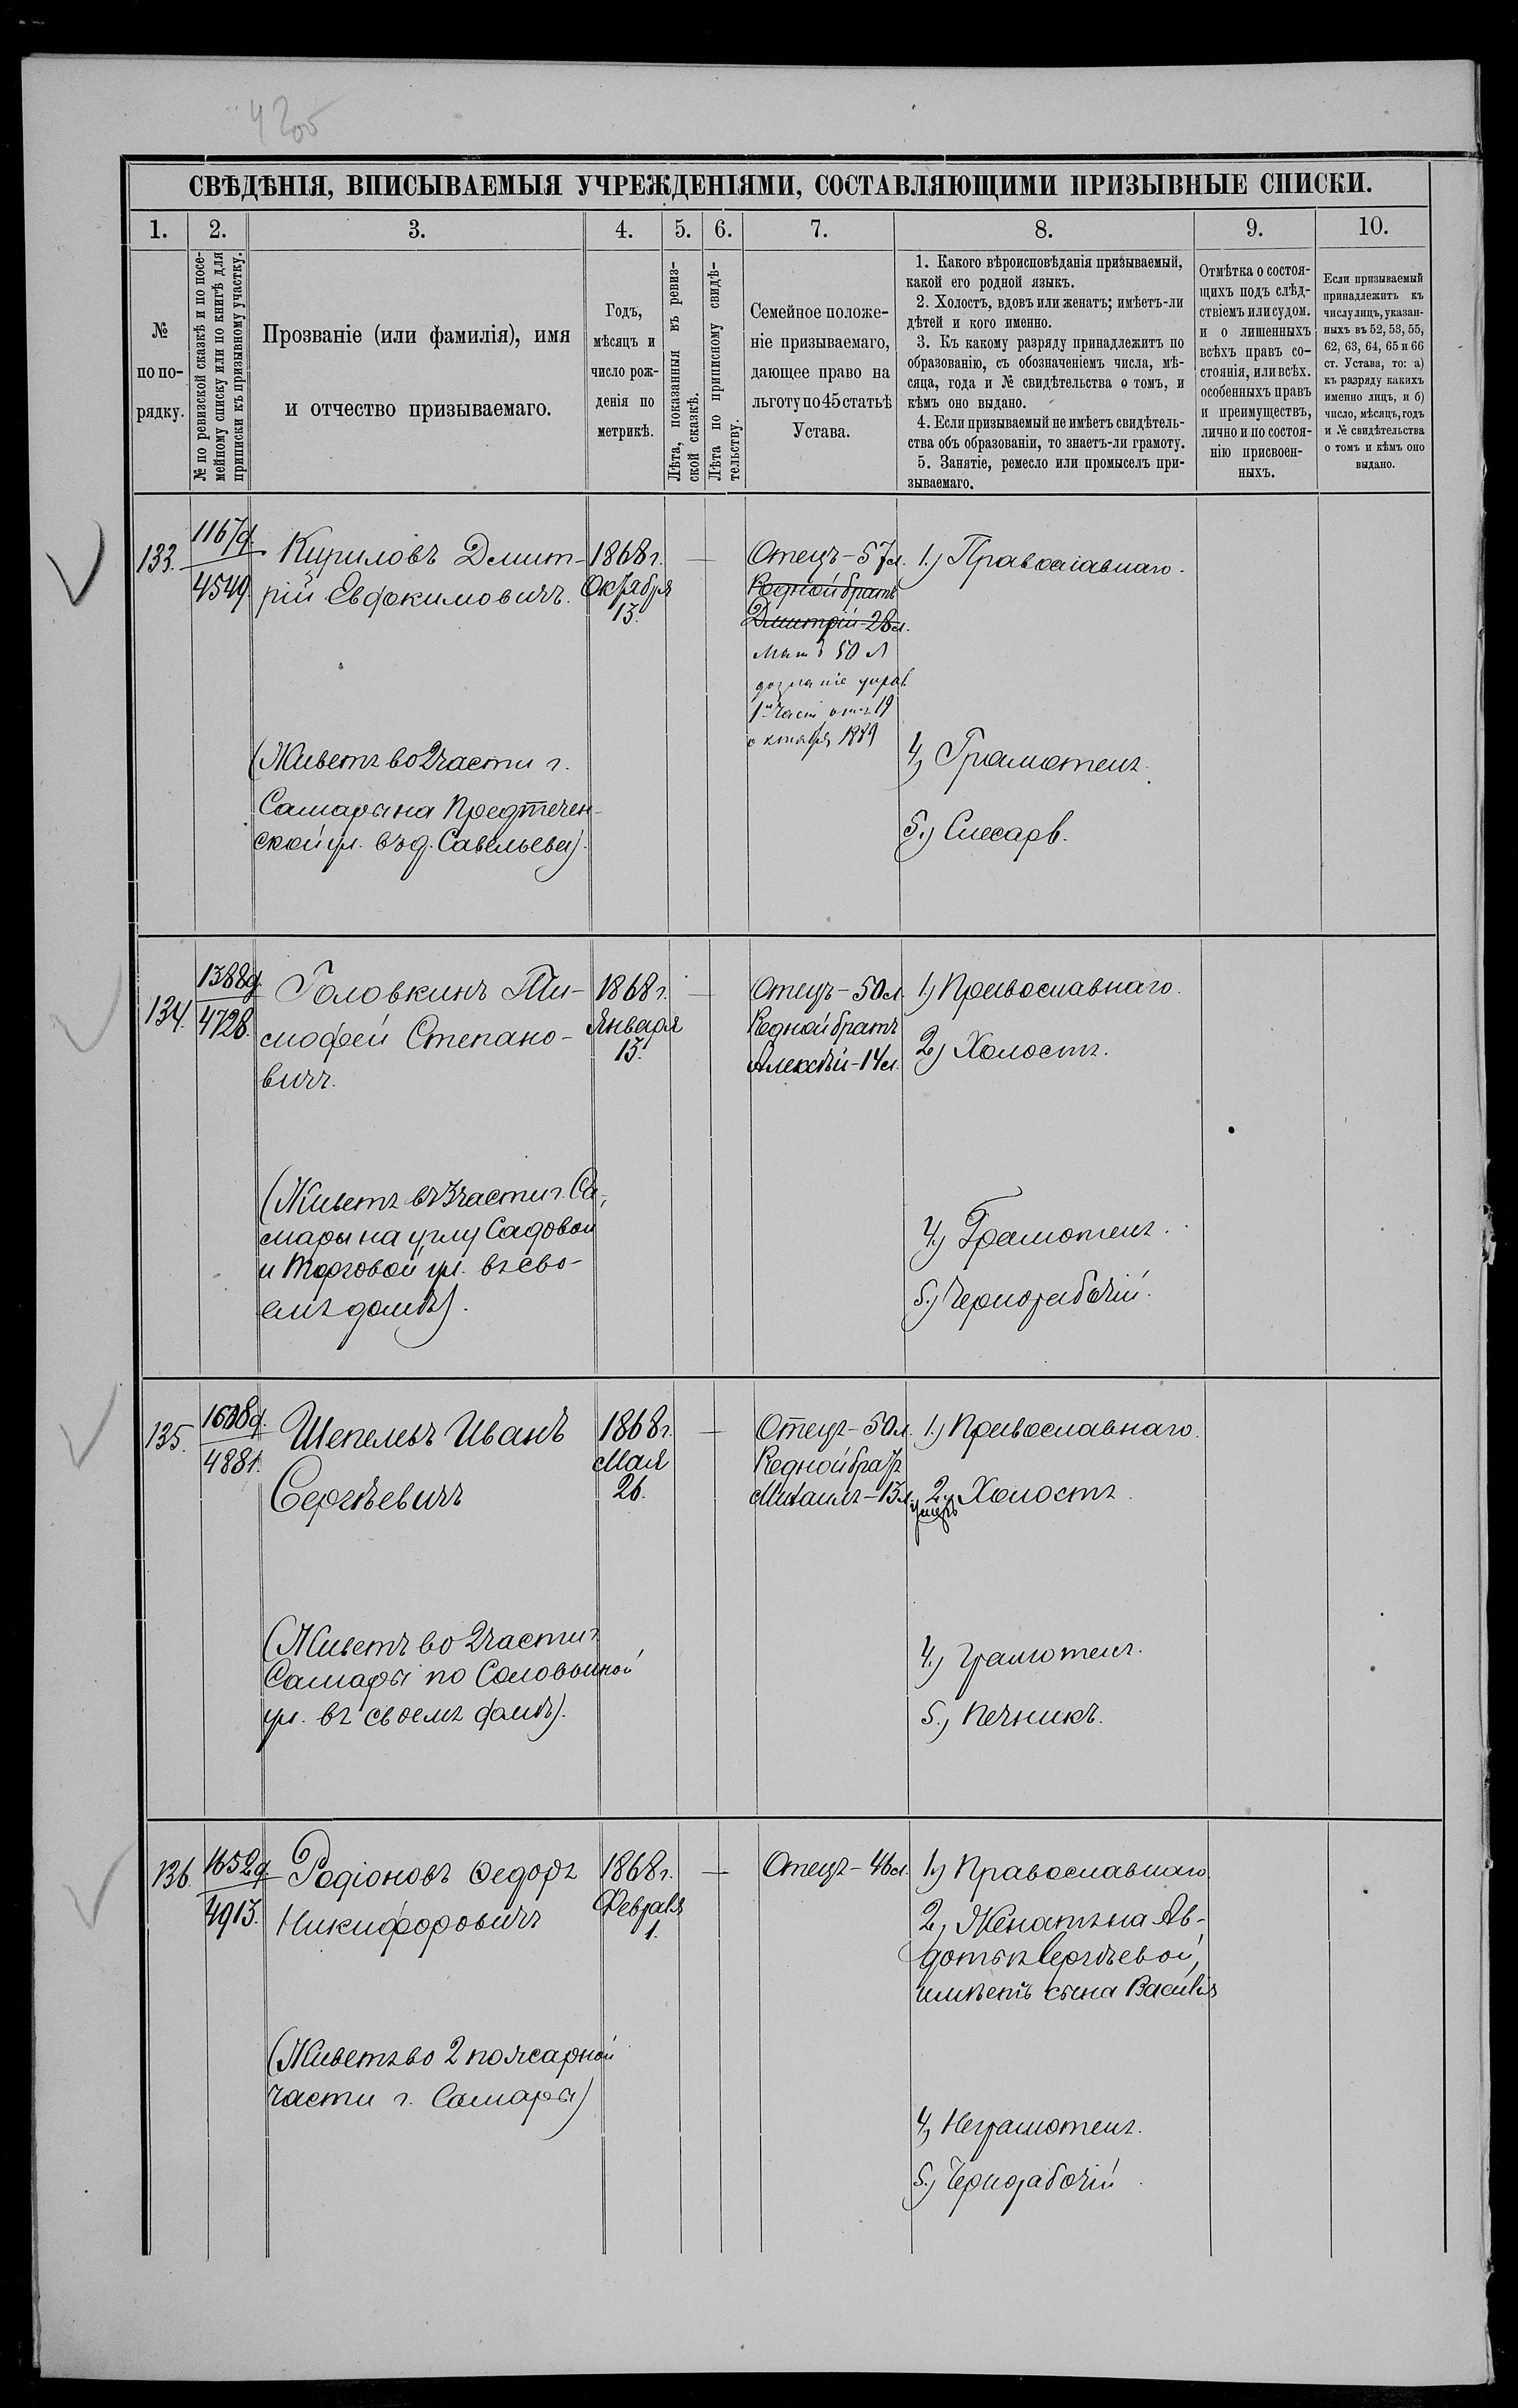 4205
СВѢДѢНІЯ, ВПИСЫВАЕМЫЯ УЧРЕЖДЕНІЯМИ, СОСТАВЛЯЮЩИМИ ПРИЗЫВНЫЕ СПИСКИ.
1. 2. 3. 4. 5. 6. 7. 8. 9. 10.
№
по по-
рядку.
№ по ревизской сказкѣ и по посе-
мейному списку или по книгѣ для
приписки къ призывному участку.
Прозваніе (или фамилія), имя
и отчество призываемаго.
Годъ,
мѣсяцъ и
число рож-
денія по
метрикѣ.
Лѣта, показанныя въ ревиз-
ской сказкѣ.
Лѣта по приписному свидѣ-
тельству.
Семейное положе-
ніе призываемаго,
дающее право на
льготу по 45 статьѣ
Устава.
1. Какого вѣроисповѣданія призываемый,
какой его родной языкъ.
2. Холостъ, вдовъ или женатъ; имѣетъ-ли
дѣтей и кого именно.
3. Къ какому разряду принадлежитъ по
образованію, съ обозначеніемъ числа, мѣ-
сяца, года и № свидѣтельства о томъ, и
кѣмъ оно выдано.
4. Если призываемый не имѣетъ свидѣтель-
ства объ образованіи, то знаетъ-ли грамоту.
5. Занятіе, ремесло или промыселъ при-
зываемаго.
Отмѣтка о состоя-
щихъ подъ слѣд-
ствіемъ или судом.
и о лишенныхъ
всѣхъ правъ со-
стоянія, или всѣх.
особенныхъ правъ
и преимуществъ,
лично и по состоя-
нію присвоен-
ныхъ.
Если призываемый
принадлежитъ къ
числу лицъ, указан-
ныхъ въ 52, 53, 55,
62, 63, 64, 65 и 66
ст. Устава, то: а)
къ разряду какихъ
именно лицъ, и б)
число, мѣсяцъ, годъ
и № свидѣтельства
о томъ и кѣмъ оно
выдано.
133.
1167д.
4549.
Кириловъ Дмит-
рій Евдокимовичъ.
(Живетъ во 2 части г.
Самары на Предтечен-
ской ул. въ д. Савельева).
1868 г.
Октября
13.
Отецъ - 57 л.
Родной братъ
Дмитрій - 28 л.
Мать 50 л
дознаніе управ.
1й част отъ 19
октября 1889
1.) Православнаго.
4.) Грамотенъ.
5.) Слесарь.
134.
1388д.
4728.
Головкинъ Ти-
мофей Степано-
вичъ.
(Живетъ въ 3 части г. Са-
мары на углу Садовой
и Торговой ул. въ сво-
емъ домѣ).
1868 г.
Января
13.
Отецъ - 50 л.
Родной братъ
Алексѣй - 14 л.
1.) Православнаго.
2.) Холостъ.
4.) Грамотенъ.
5.) Чернорабочій.
135.
4881.
Шепелевъ Иванъ
Сергѣевичъ
(Живетъ во 2 части г.
Самары по Соловьиной
ул. въ своемъ домѣ).
1868 г.
Мая
26.
Отецъ - 50 л.
Родной братъ
Михаилъ - 13 л.
умеръ
1.) Православнаго.
2.) Холостъ.
4.) Грамотенъ.
5.) Печникъ.
136.
1652д.
4913.
Родіоновъ Федоръ
Никифоровичъ
(Живетъ во 2 пожарной
части г. Самары)
1868 г.
Февраля
1.
Отецъ - 46 л.
1.) Православнаго.
2.) Женатъ на Ав-
дотьѣ Сергѣевой,
имѣетъ сына Василія
4.) Неграмотенъ.
5.) Чернорабочій.